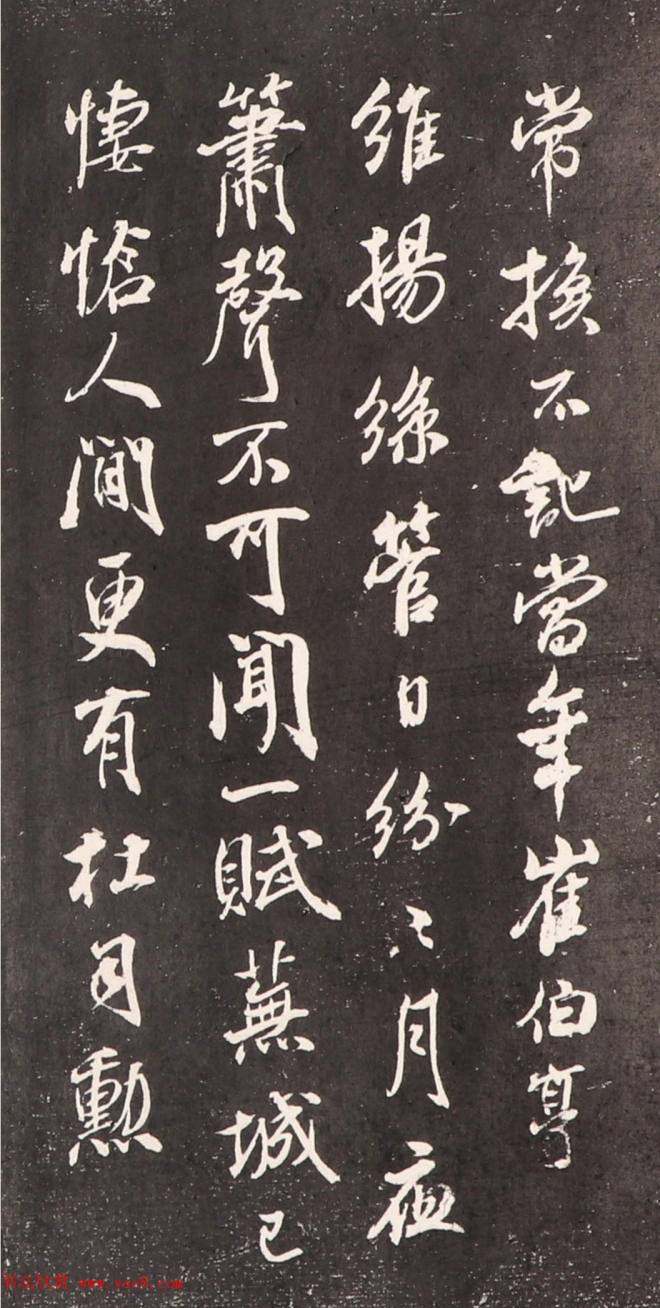 常換不記當年崔伯亭
維揚絲管日紛〻月夜
簫聲不可聞一賦蕪城已
悽愴人間更有杜司勳
www.yac8.com